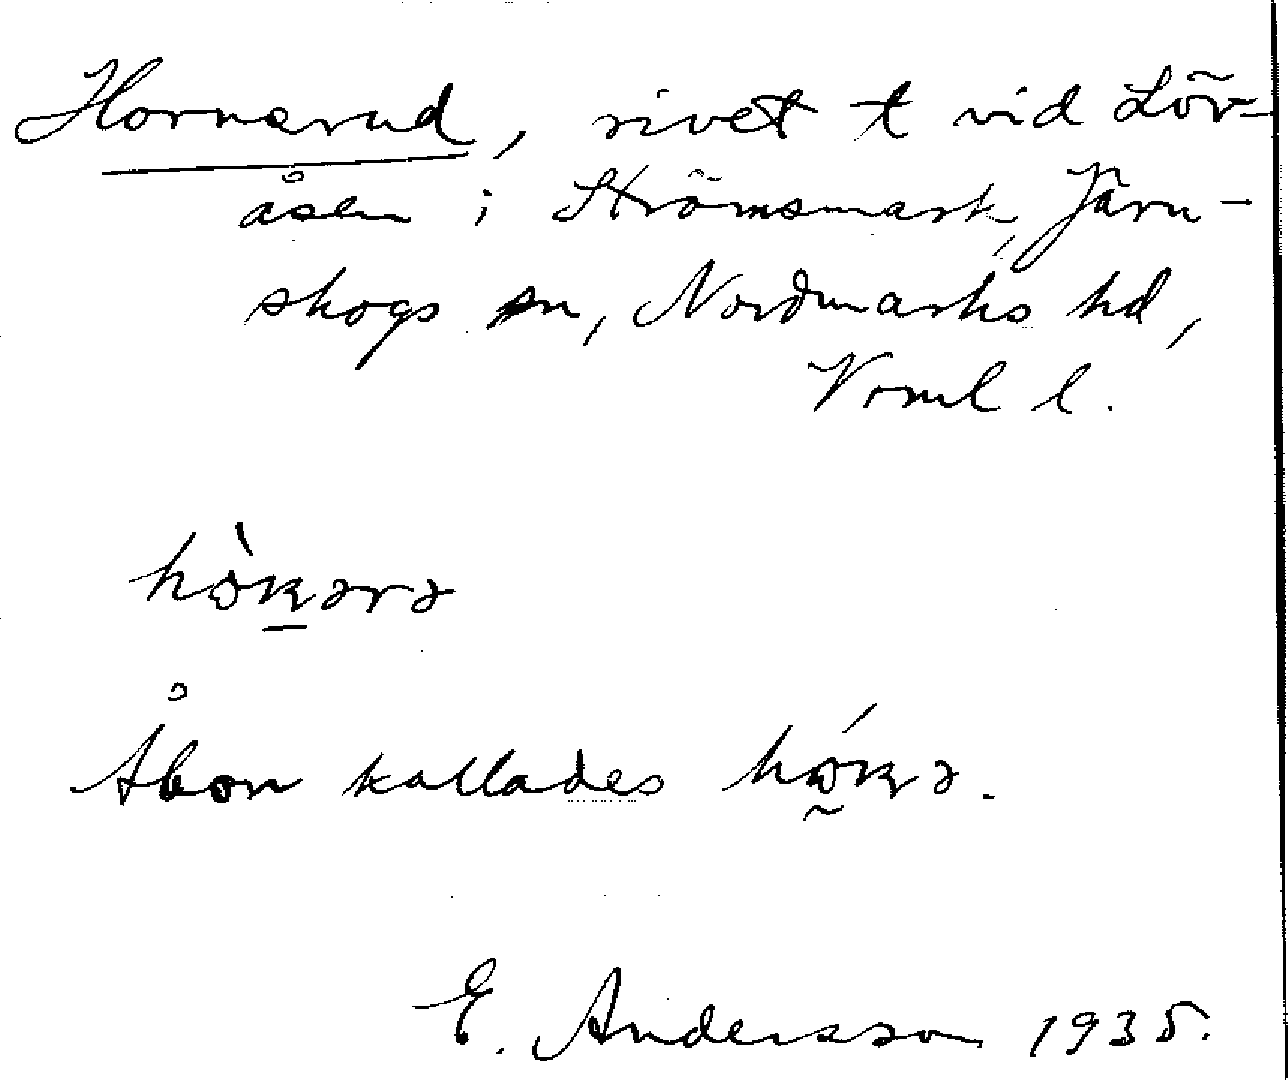 Hornerud, rivet t vid Löv-
åsen i Strömsmark, Järn-
skogs sn, Nordmarks hd,
Vrml l.
Åbon kallades
E. Andersson 1935.